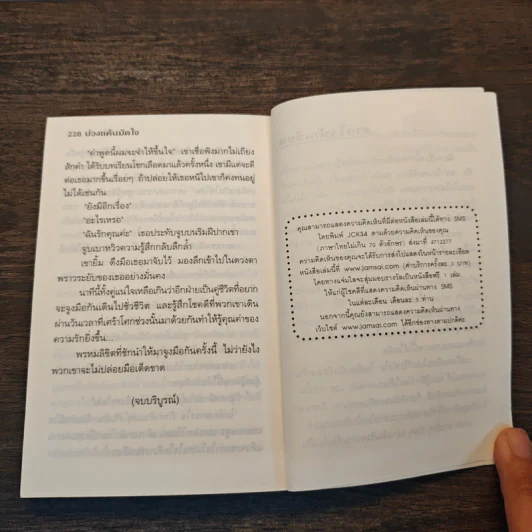 228 บ่วงแค้นมัดใจ
"คำพูดนี้ผมจะจำให้ขึ้นใจ" เขาเชื่อฟังมากไม่เถียง
สักคำ ได้รับบทเรียนโชกเลือดมาแล้วครั้งหนึ่ง เขามีแต่จะดี
ต่อเธอมากขึ้นเรื่อยๆ ถ้าปล่อยให้เธอหนีไปเขาก็คงทนอยู่
ไม่ได้เช่นกัน
"ยังมีอีกเรื่อง"
"อะไรเหรอ"
"ฉันรักคุณค่ะ" เธอประทับจูบบนริมฝีปากเขา
จูบเบาหวิวความรู้สึกกลับลึกล้ำ
เขายิ้ม ดึงมือเธอมาจับไว้ มองลึกเข้าไปในดวงตา
พราวระยับของเธออย่างมั่นคง
นาทีนี้ทั้งคู่แน่ใจเหลือเกินว่าอีกฝ่ายเป็นคู่ชีวิตที่อยาก
จะจูงมือกันเดินไปชั่วชีวิต และรู้สึกโชคดีที่พวกเขาเดิน
ผ่านวันเวลาที่เศร้าโศกช่วงนั้นมาด้วยกันทำให้รู้คุณค่าของ
ความรักยิ่งขึ้น
พรหมลิขิตที่ชักนำให้มาจูงมือกันครั้งนี้ ไม่ว่ายังไง
พวกเขาจะไม่ปล่อยมือเด็ดขาด
(จบบริบูรณ์)
คุณสามารถแสดงความคิดเห็นที่มีต่อหนังสือเล่มนี้ได้ทาง SMS
โดยพิมพ์ JCR34 ตามด้วยความคิดเห็นของคุณ
(ภาษาไทยไม่เกิน 70 ตัวอักษร) ส่งมาที่ 4712277
ความคิดเห็นของคุณจะได้รับการส่งไปแสดงในหน้ารายละเอียด
หนังสือเล่มนี้ที่ www.jamsai.com (ค่าบริการครั้งละ 3 บาท)
โดยทางแจ่มใสจะสุ่มมอบรางวัลเป็นหนังสือฟรี 1 เล่ม
ให้แก่ผู้โชคดีที่แสดงความคิดเห็นผ่านทาง SMS
ในแต่ละเดือน เดือนละ 5 ท่าน
นอกจากนี้คุณยังสามารถแสดงความคิดเห็นผ่านทาง
เว็บไซต์ www.jamsai.com ได้อีกช่องทางตามปกติค่ะ